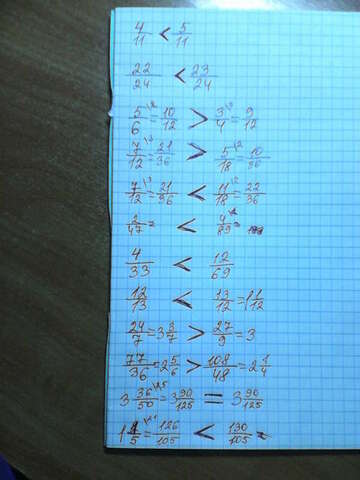 4/11 < 5/11
22/24 < 23/24
5/6 \2 = 10/12 > 3/4 \3 = 9/12
7/12 \3 = 21/36 > 5/18 \2 = 10/36
7/12 \3 = 21/36 < 11/18 \2 = 22/36
2/47 = < 4/89 =
4/33 < 12/69
12/13 < 13/12 = 1 1/12
24/7 = 3 3/7 > 27/9 = 3
77/36 = 2 5/6 > 108/48 = 2 1/4
3 36/50 \2,5 = 3 90/125 = 3 90/125
1 1/5 \21 = 126/105 < 130/105 =